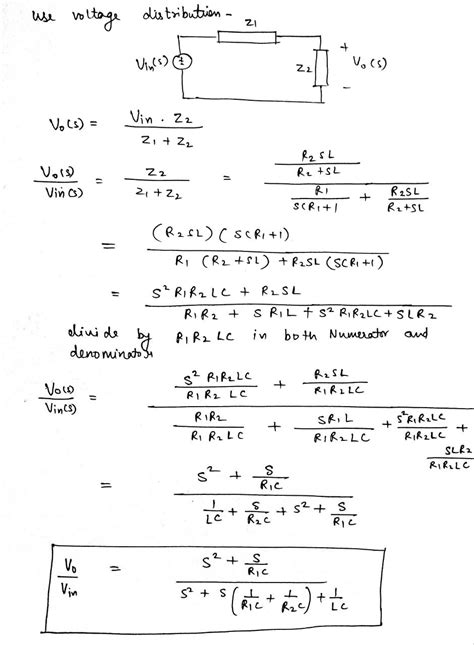 use voltage distribution -
Z1
Vin(s)
Z2
+
Vo(s)
-
Vo(s) = Vin . Z2 / Z1 + Z2
Vo(s) / Vin(s) = Z2 / Z1 + Z2 = (R2SL / R2+SL) / (R1 / SCR1+1 + R2SL / R2+SL)
= (R2SL) (SCR1+1) / R1 (R2+SL) + R2SL (SCR1+1)
= S²R1R2LC + R2SL / R1R2 + SR1L + S²R1R2LC + SLR2
divide by R1R2LC in both Numerator and
denominators
Vo(s) / Vin(s) = (S²R1R2LC / R1R2LC + R2SL / R1R2LC) / (R1R2 / R1R2LC + SR1L / R1R2LC + S²R1R2LC / R1R2LC + SLR2 / R1R2LC)
= (S² + S / R1C) / (1 / LC + S / R2C + S² + S / R1C)
Vo / Vin = (S² + S / R1C) / (S² + S (1 / R1C + 1 / R2C) + 1 / LC)